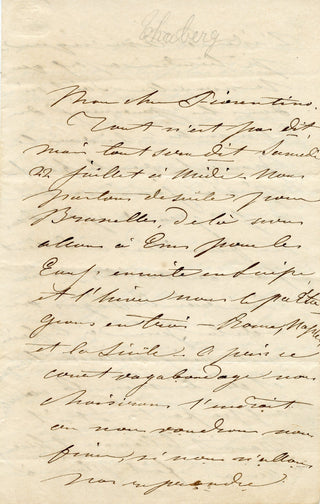 Thalberg
Mon cher Fiorentino.
Tout n'est pas dit
mais tout sera dit Samedi
22 juillet à midi. Nous
partons de suite pour
Bruxelles de là nous
allons à Ems pour les
Eaux, ensuite en Suisse
et l'hiver nous le
en trois — Rome, Naples
et la Sicile. Après ce
court vagabondage nous
choisirons l'endroit
où nous voudrons nous
fixer, si nous n'allons
pas